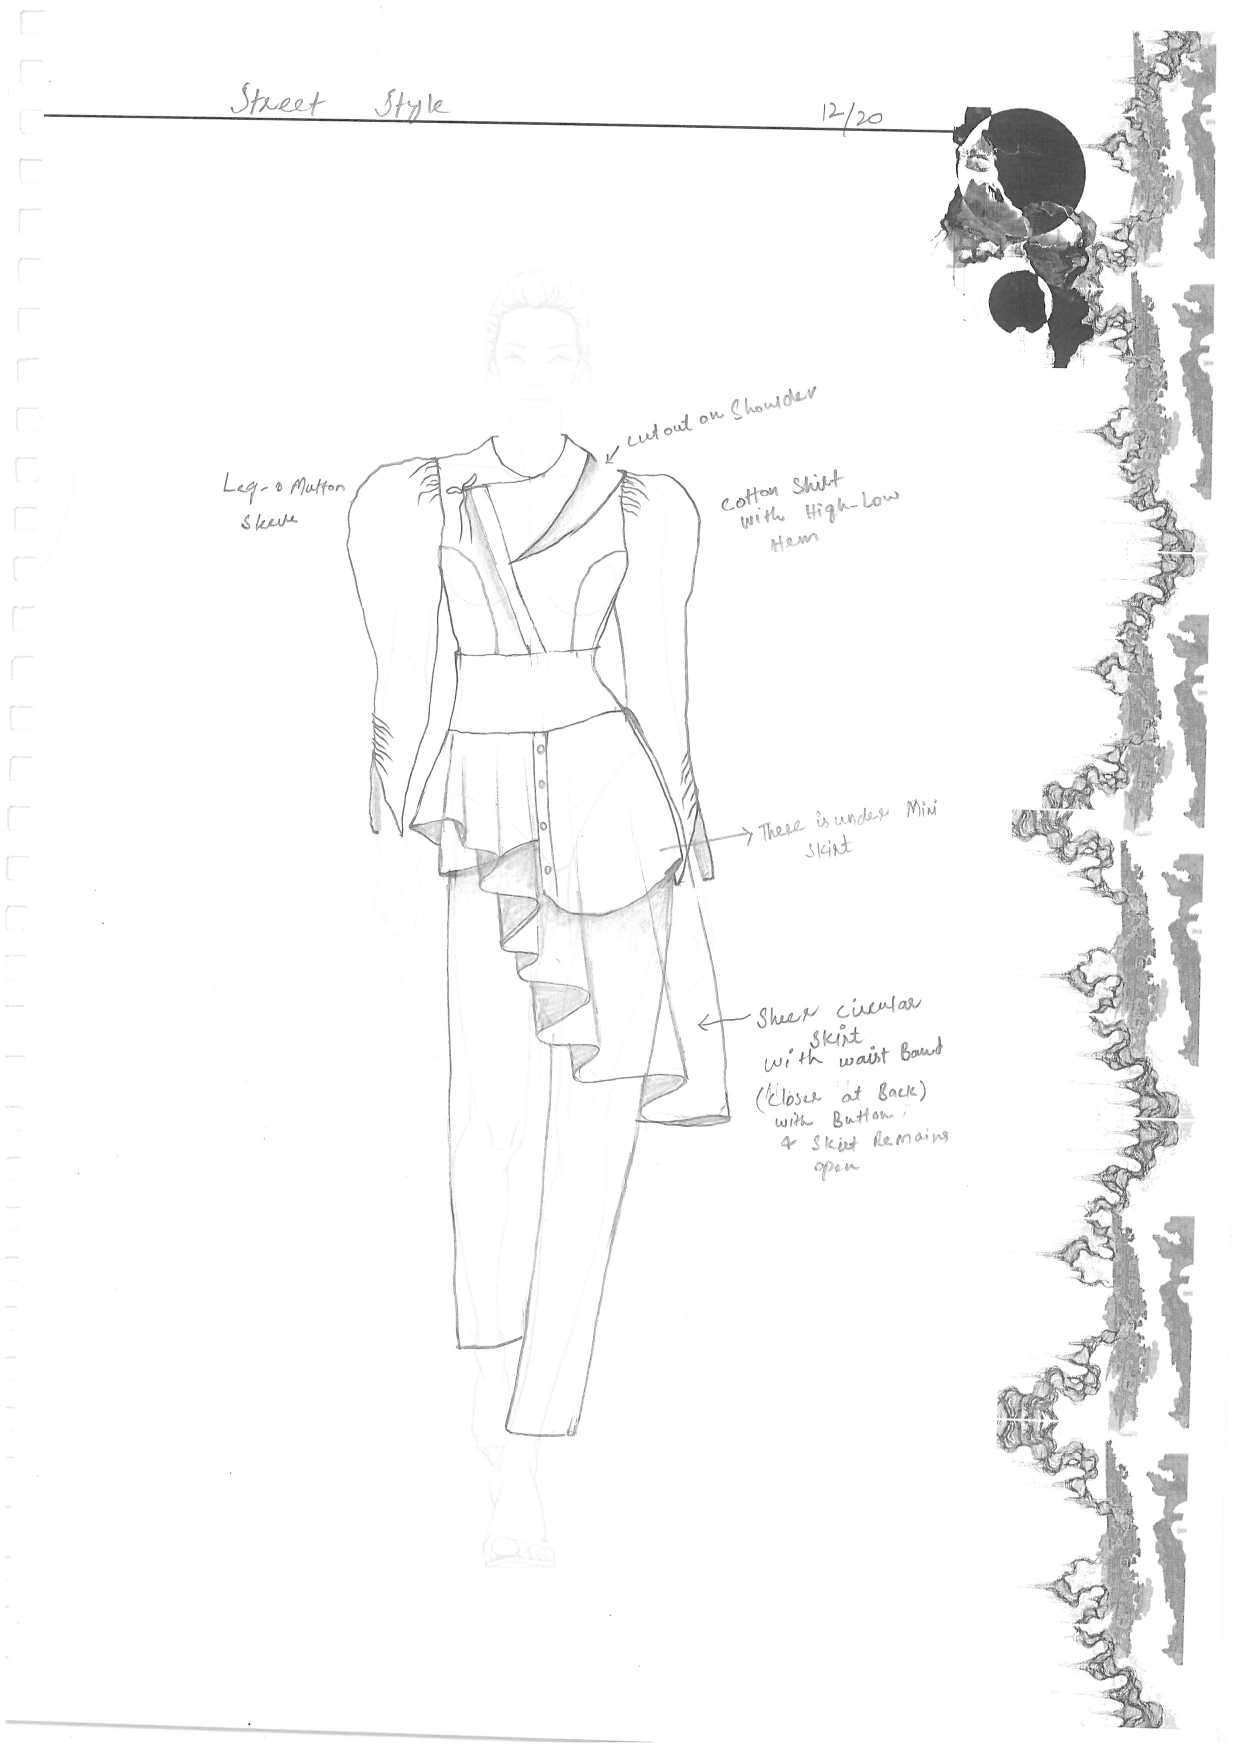 Street Style
12/20
cutout on Shoulder
Leg-o Mutton
Sleeve
cotton Shirt
with High-Low
Hem
There is under Mini
Skirt
Sheer circular
Skirt
with waist Band
(Closer at Back)
with Button
& Skirt Remains
open